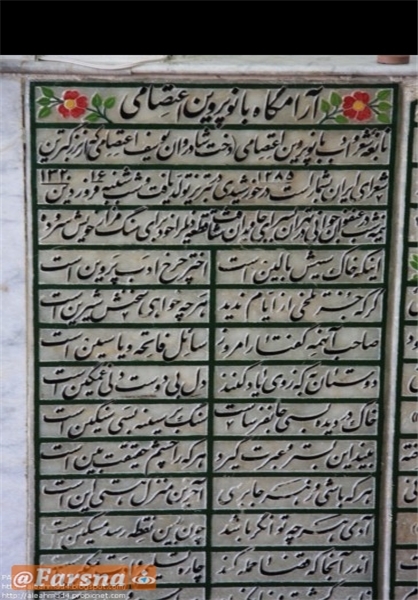 آرامگاه بانو پروین اعتصامی
نابغه شعر و ادب بانو پروین اعتصامی دخت شادروان یوسف اعتصامی که از بزرگترین
شعرای ایران بشمار است در ۱۲۸۵ خورشیدی در تبریز تولد یافت شنبه ۱۶ فروردین ۱۳۲۰
جوانی سرای جاودان شتافت قطعه زیر را خود برای سنگ مزار خویش سروده
اینکه خاک سیهش بالین است اختر چرخ ادب پروین است
گرچه جز تلخی از ایام ندید هرچه خواهی سخنش شیرین است
صاحب آنهمه گفتار امروز سائل فاتحه و یاسین است
دوستان به که ز وی یاد کنند دل بی دوست دلی غمگین است
خاک در دیده بسی جانفرساست سنگ بر سینه بسی سنگین است
بیند این بستر و عبرت گیرد هر که را چشم حقیقت بین است
هر که باشی و ز هر جا برسی آخرین منزل هستی این است
آدمی هر چه توانگر باشد چون بدین نقطه رسد مسکین است
اندر آنجا که قضا حمله کند چاره
@Farsna